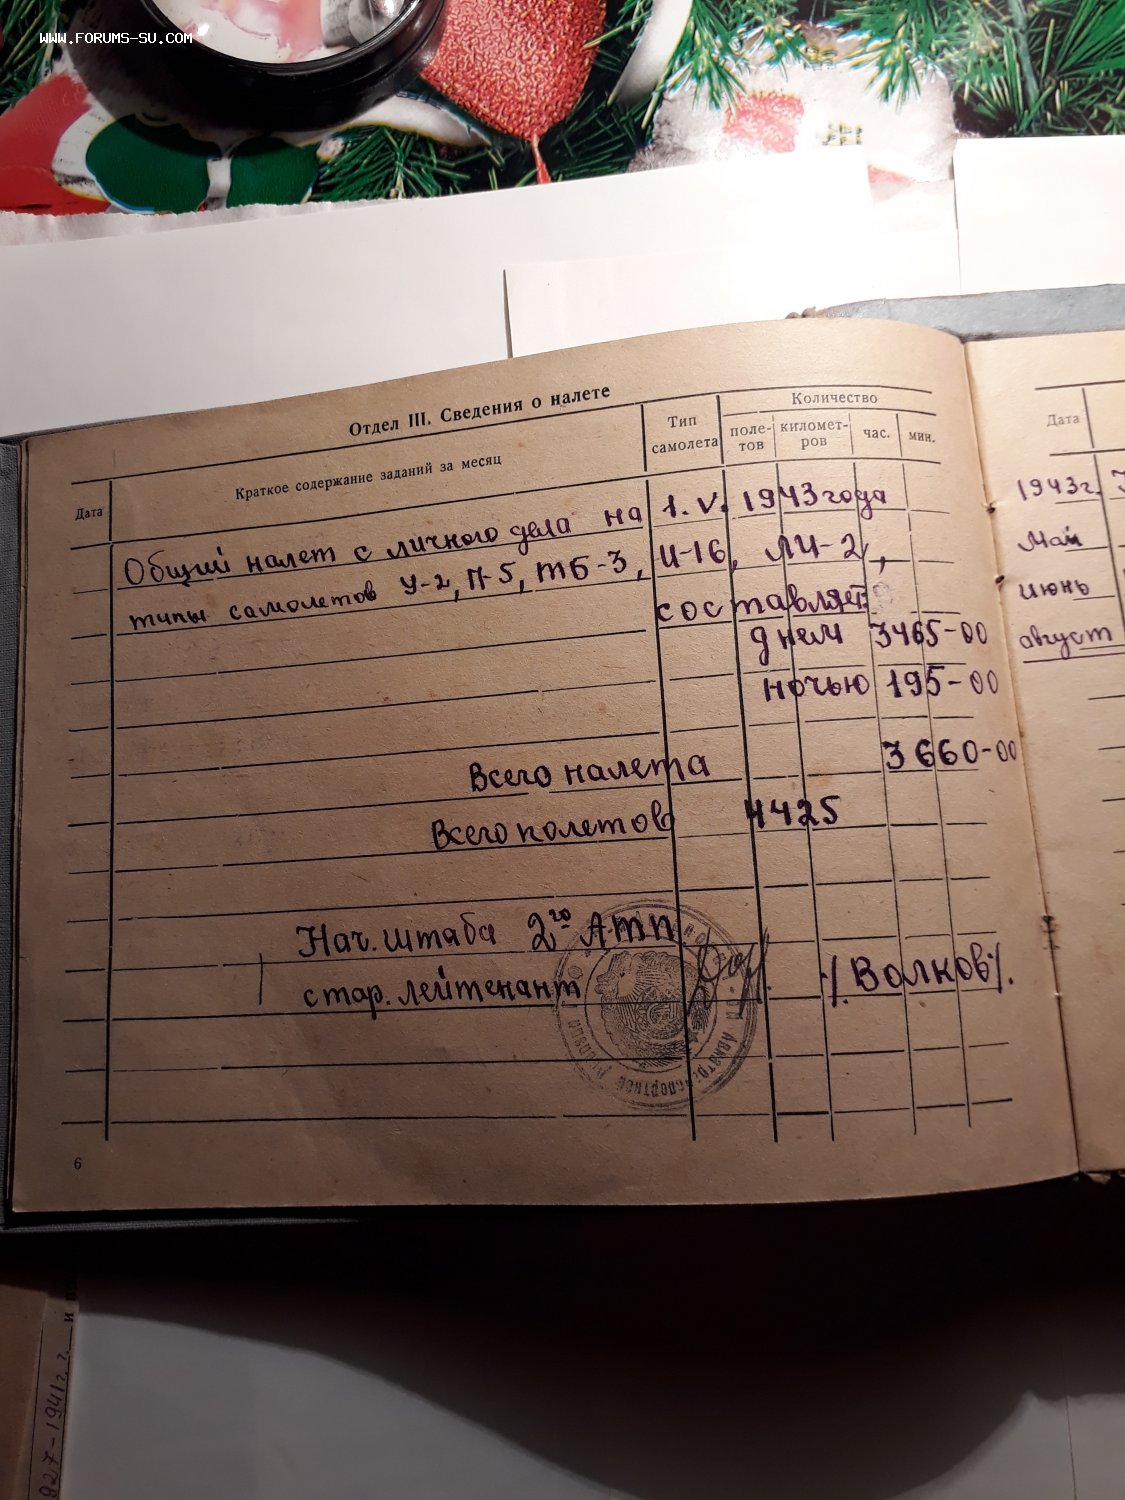 WWW.FORUMS-SU.COM
Отдел III. Сведения о налете
Дата
Краткое содержание заданий за месяц
Тип самолета
Количество
поле-
тов
километ-
ров
час.
мин.
Общий налет с личного дела на 1.V. 1943 года
типы самолетов У-2, П-5, ТБ-3, И-16, ЛИ-2,
составляет:
днем 3465-00
ночью 195-00
Всего налета 3660-00
Всего полетов 4425
Нач. штаба 2го АТП
стар. лейтенант /Волков/.
6
Дата
1943г.
Май
июнь
август
927-1941г.г.